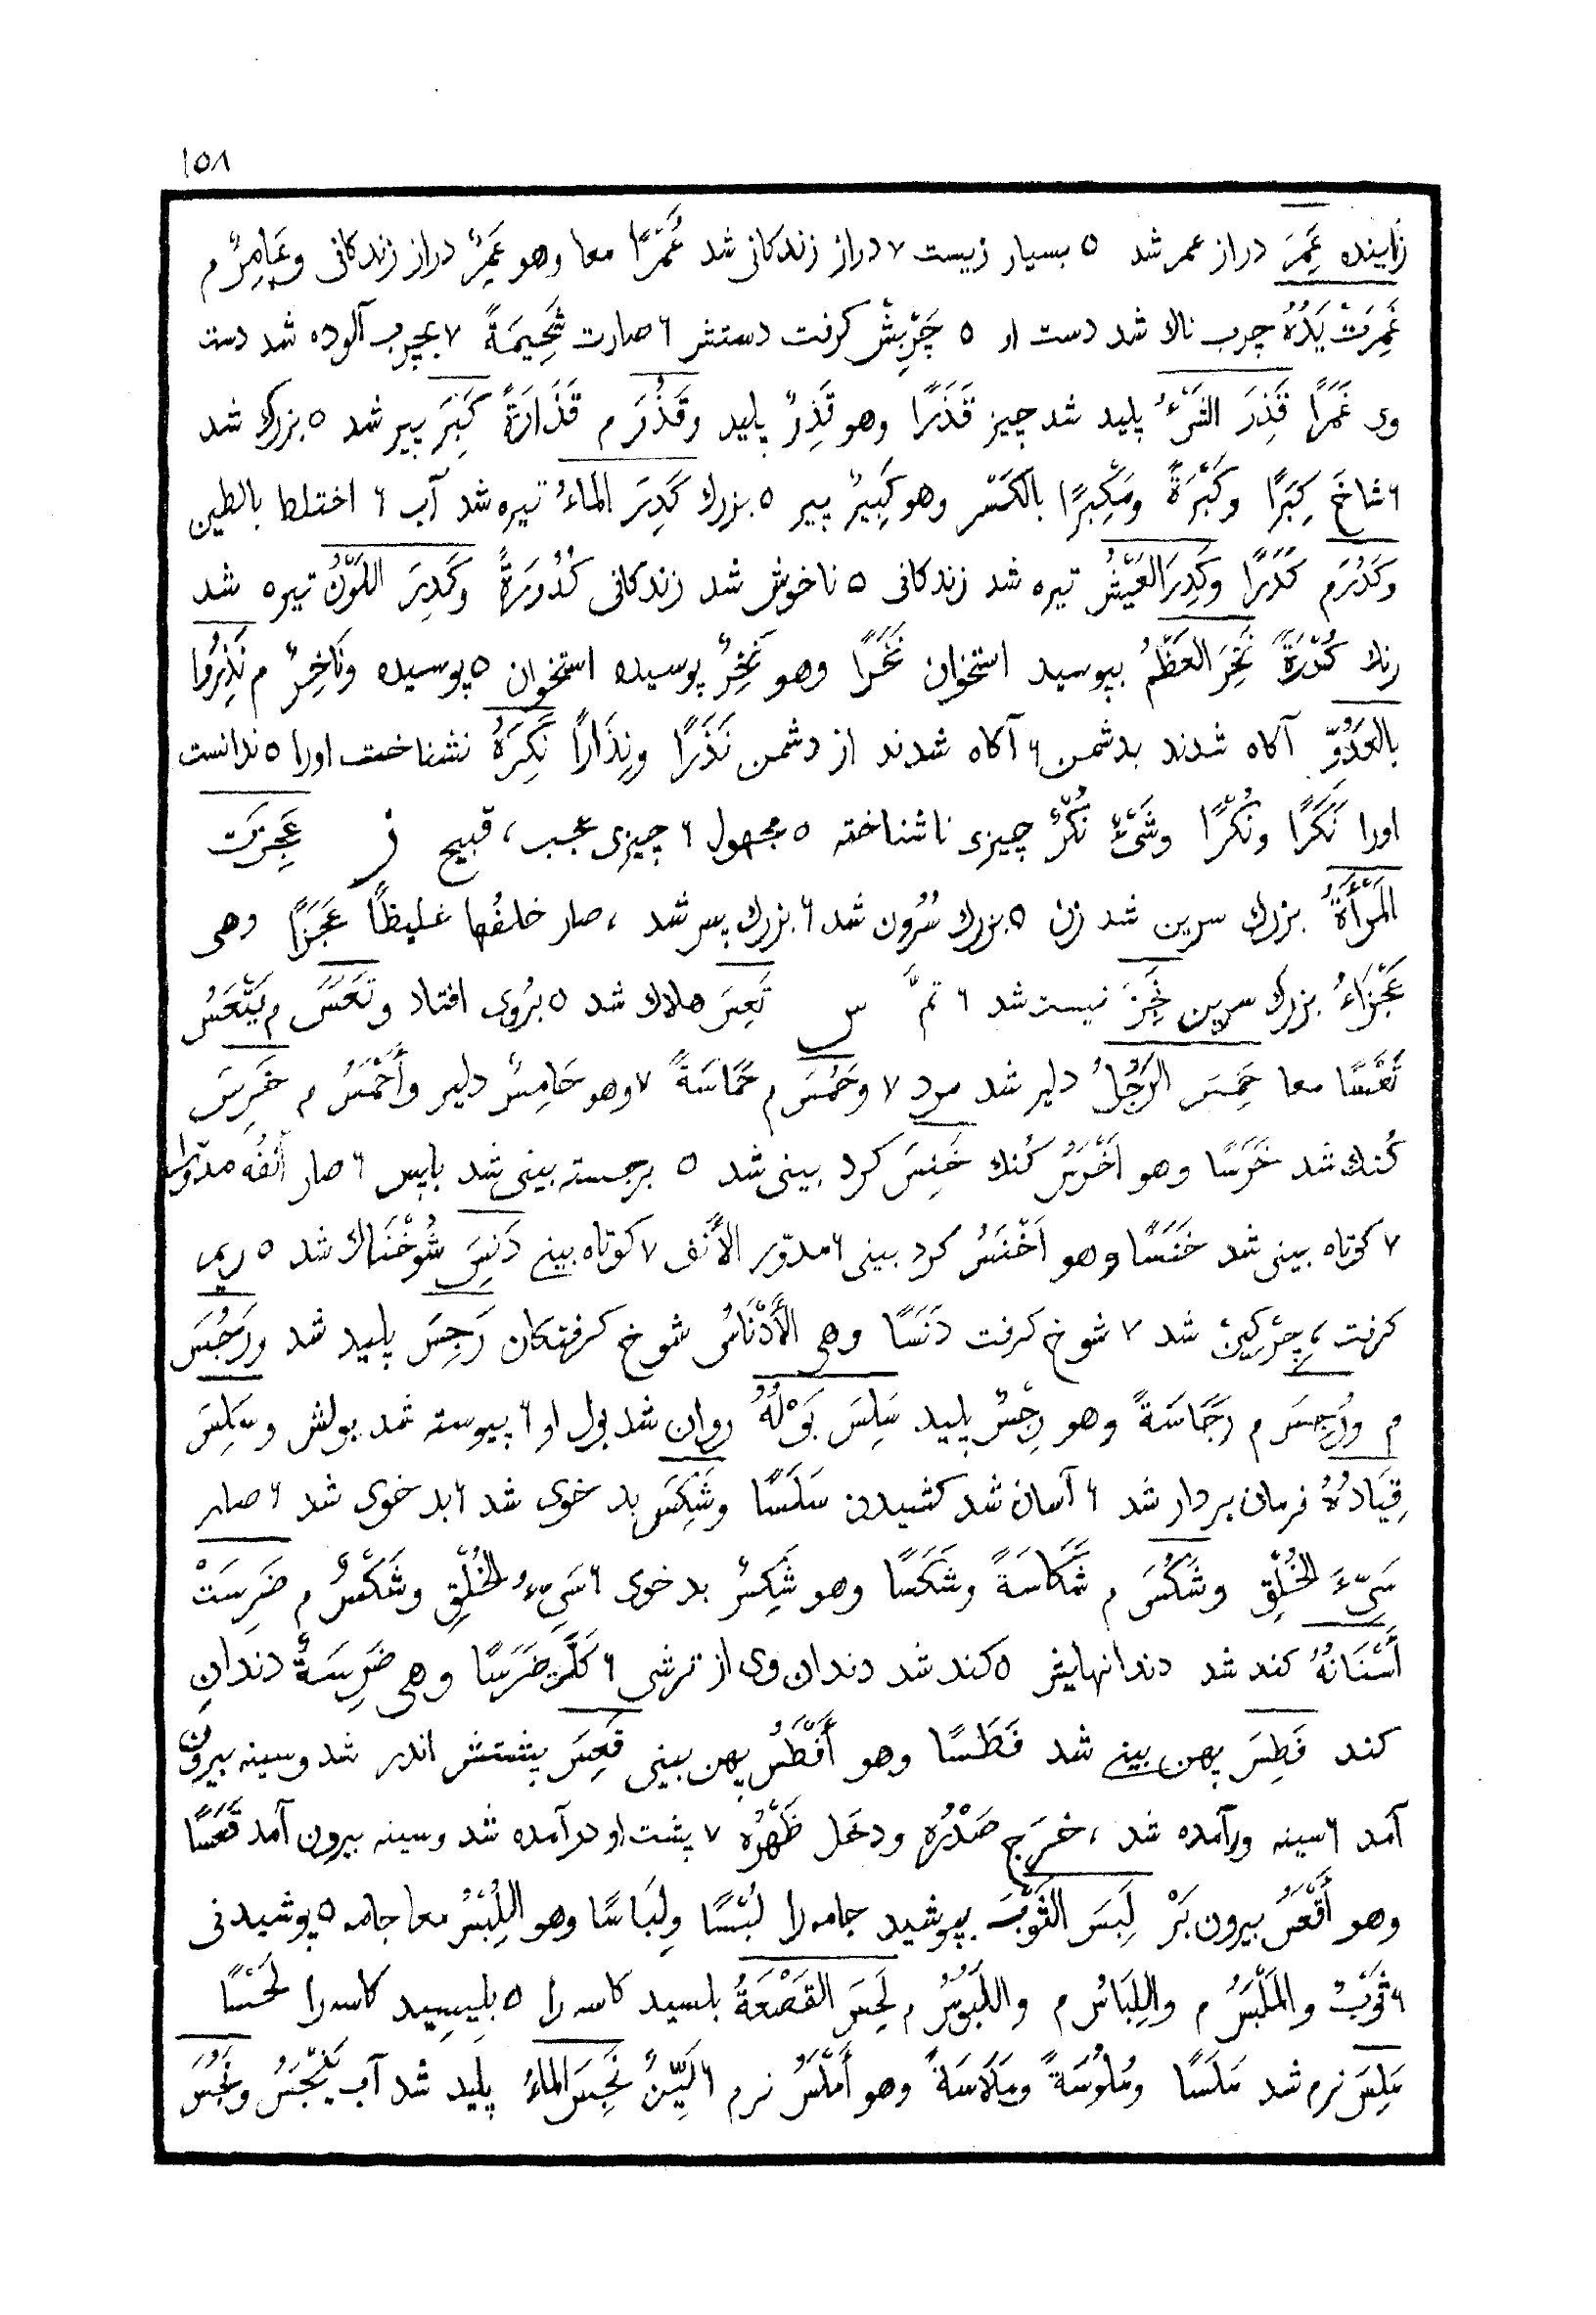 ١٥٨
زاینده عَمِرَ دراز عمر شد ٥ بسیار زیست ٧ دراز زندکانی شد عُمْرًا معا وهو عَمِرٌ دراز زندکانی وعَامِرٌ م
غَمِرَتْ یَدُهُ چرب ناك شد دست او ٥ چَرْبِشْ کرفت دستش ٦ صارت شَحِیمَةً ٧ بچرب آلوده شد دست
وی غَمَرًا قَذِرَ الشَّیْءُ پلید شد چیز قَذَرًا وهو قَذِرٌ پلید وقَذُرَ م قَذَارَةً کَبِرَ پیر شد ٥ بزرك شد
٦ شاخَ کِبَرًا وکَبْرَةً ومَکْبِرًا بالکَسْر وهو کَبِیرٌ پیر ٥ بزرك کَدِرَ الماءُ تیره شد آب ٦ اختلط بالطین
وکَدُرَ م کَدَرًا وکَدِرَ العَیْشُ تیره شد زندکانی ٥ ناخوش شد زندکانی کُدُورَةً وکَدِرَ اللَوْنُ تیره شد
رنك کُدْرَةً نَخِرَ العَظْمُ بپوسید استخوان نَخَرًا وهو نَخِرٌ پوسیده استخوان ٥ پوسیده ونَاخِرٌ م نَذِرُوا
بالعَدُوِّ آکاه شدند بدشمن ٦ آکاه شدند از دشمن نَذَرًا ونِذَارًا نَکِرَهُ نشناخت اورا ٥ ندانست
اورا نَکَرًا ونُکْرًا وشَیْءٌ نُکْرٌ چیزی ناشناخته ٥ مجهول ٦ چیزی عجب ، قبیح ز عَجِزَت
المَرْأَةُ بزرك سرین شد زن ٥ بزرك سُرُون شد ٦ بزرك پس شد ، صار خلفُها غلیظًا عَجَزًا وهی
عَجْزَاءُ بزرك سرین نَجِزَ نیست شد ٦ تمَّ س تَعِسَ هلاك شد ٥ برُوی افتاد وتَعَسَ م یَتْعَسُ
تَعْسًا معا حَمِسَ الرَجُلُ دلیر شد مرد ٧ وحَمُسَ م حَمَاسَةً ٧ وهو حَامِسٌ دلیر وأَحْمَسُ م خَرِسَ
کُنك شد خَرَسًا وهو أَخْرَسُ کُنك خَنِسَ کرد بینی شد ٥ برجسته بینی شد باپس ٦ صار أنفُه مدوّرا
٧ کوتاه بینی شد خَنَسًا وهو أَخْنَسُ کرد بینی ٦ مدوّر الأَنف ٧ کوتاه بینی دَنِسَ شُوخْنَاك شد ٥ ریم
کرفت ، چِرْکِینْ شد ٧ شوخ کرفت دَنَسًا وهی الأَدْنَاسُ شوخ کرفتکان رَجِسَ پلید شد ورَجُسَ
م ورُجِسَ م رَجَاسَةً وهو رِجْسٌ پلید سَلِسَ بَوْلُهُ روان شد بول او ٦ پیوسته شد بولش وسَلِسَ
قِیَادُهُ فرمان بردار شد ٦ آسان شد کشیدن سَلَسًا وشَکِسَ بد خوی شد ٦ بد خوی شد ٦ صار
سَیّءَ الخُلْقِ وشَکُسَ م شَکَاسَةً وشَکَسًا وهو شَکِسٌ بد خوی ٦ سَیّءُ الخُلْقِ وشَکْسٌ م ضَرِسَتْ
أَسْنَانُهُ کند شد دندانهایش ٥ کند شد دندان وی از ترشی ٦ کَلَّت ضَرَسًا وهی ضَرِسَةٌ دندانِ
کند فَطِسَ پهن بینی شد فَطَسًا وهو أَفْطَسُ پهن بینی قَعِسَ پشتش اندر شد وسینه بیرون
آمد ٦ سینه ورآمده شد ، خرَج صَدْرُه ودخل ظَهْرُه ٧ پشت او درآمده شد وسینه بیرون آمد قَعَسًا
وهو أَقْعَسُ بیرون بَرْ لَبِسَ الثَوْبَ بپوشید جامه را لُبْسًا ولِبَاسًا وهو اللُِبْسُ معا جامه ٥ پوشیدنی
٦ ثَوْبٌ والمَلْبَسُ م واللِبَاسُ م واللَبُوسُ م لَحِسَ القَصْعَةَ بلسید کاسه را ٥ بلِیسِید کاسه را لَحْسًا
مَلِسَ نرم شد مَلَسًا ومُلُوسَةً ومَلَاسَةً وهو أَمْلَسُ نرم ٦ لَیِّنٌ نَجِسَ الماءُ پلید شد آب یَنْجَسُ ونَجُسَ